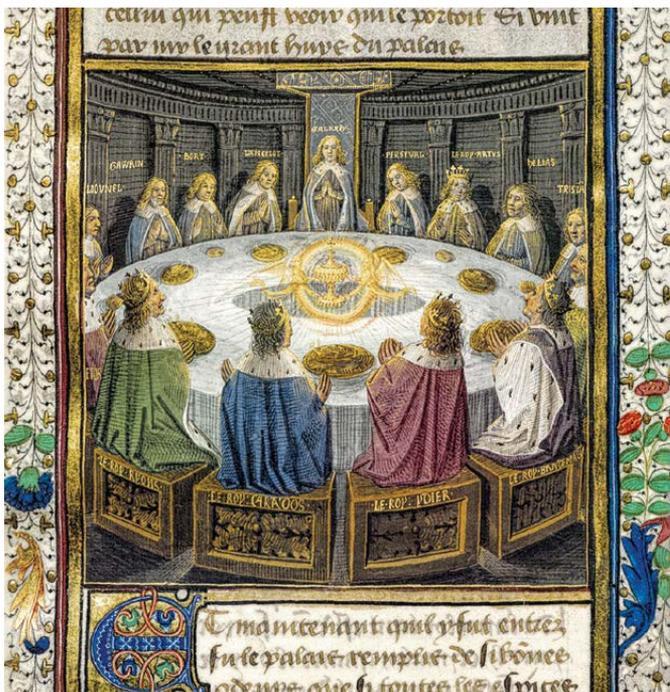 cellui qui peust veoir qui le portoit Si vint
par my le urant huys du palais
GALAAD
GAWAIN
BORT
LANCELOT
PERSEVAL
LE ROY ARTVS
HELIAS
LIOVNEL
TRISTA
LE ROY KEOHS
LE ROY CARAOOS
LE ROY YDIER
LE ROY
Et maintenant quil y fut entrez
fu le palais remplis de si bônes
odeurs que si toutes les espices